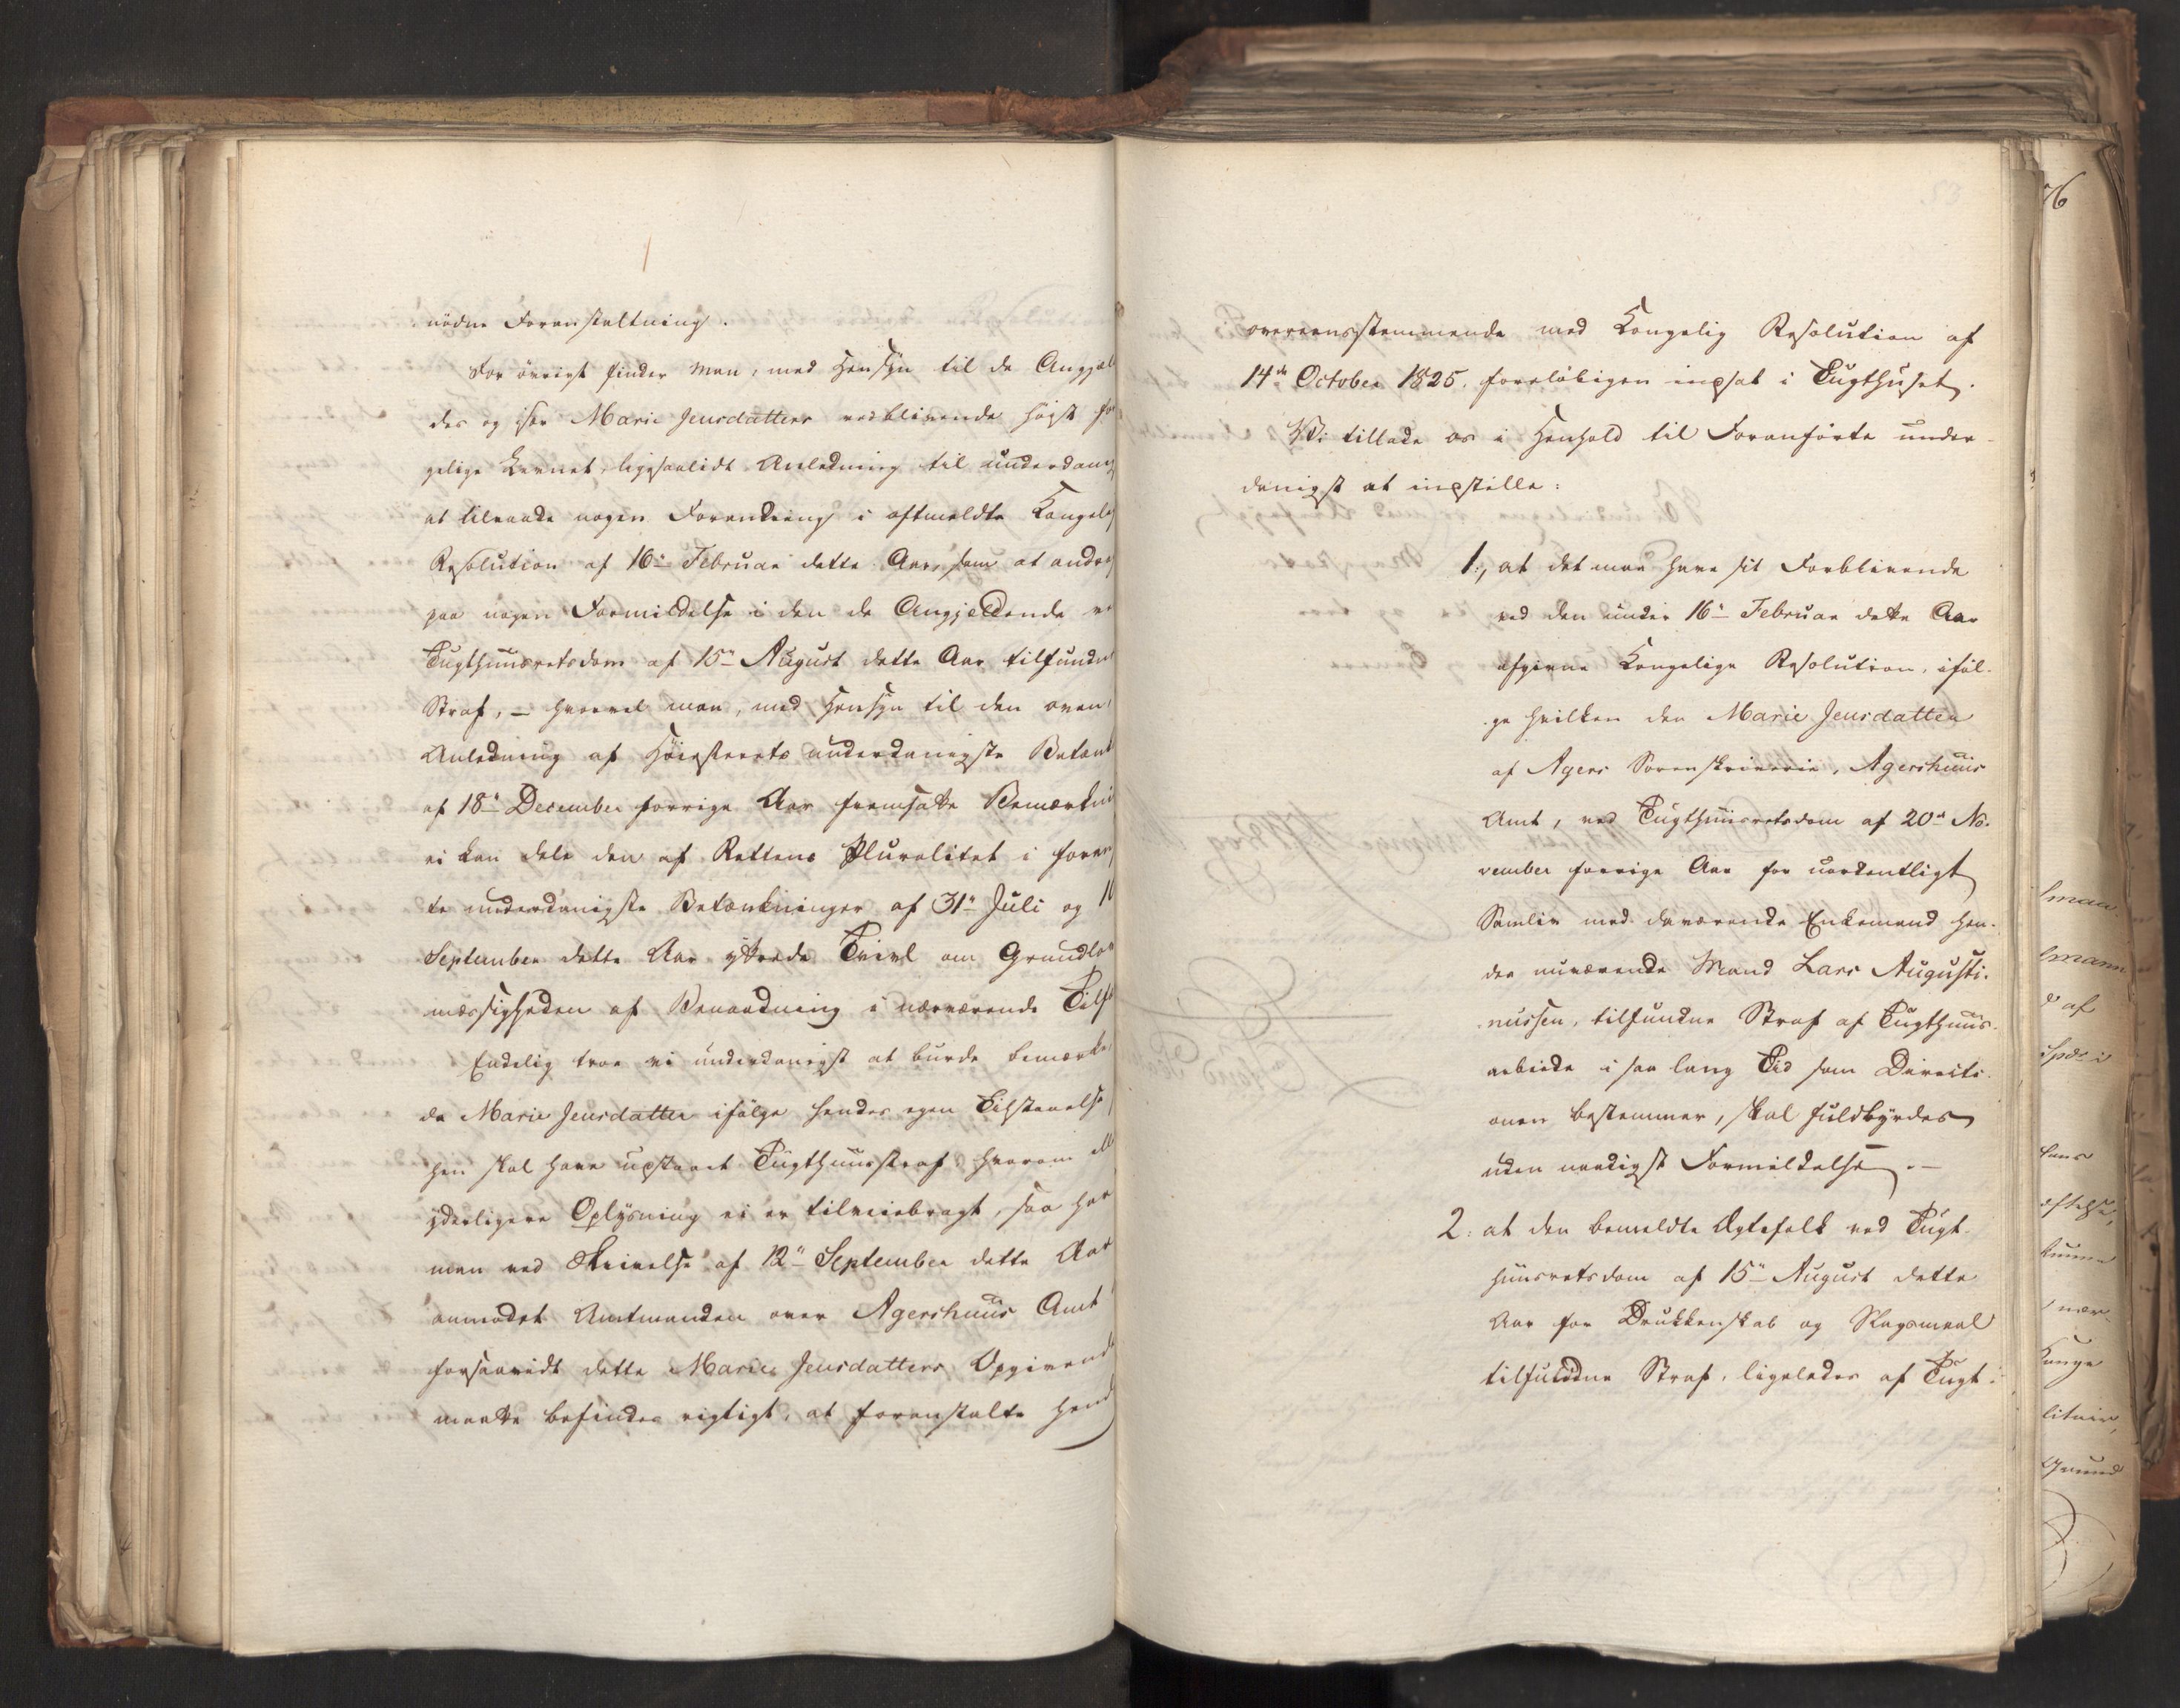 nødne Foranstaltning.
For øvrigt finder man, med Hensyn til de Angjæl
des og især Marie Jensdatters vedblivende høist
gelige Levnet, ligesaalidt Anledning til underdanig
at tilraade nogen Forandring i oftmeldte Kongelig
Resolution af 16de Februar dette Aar, som at andra
paa nogen Formildelse i den de Angjældende ve
Tugthuusretsdom af 15de August dette Aar tilfundne
Straf, – hvorvel man, med Hensyn til den oven
Anledning af Høiesterets underdanigste Betænk
af 18de December forrige Aar fremsatte Bemærkni
ei kan dele den af Rettens Pluralitet i foran
te underdanigste Betænkninger af 31te Juli og 10
September dette Aar yttrede Tvivl om Grundlov
mæssigheden af Benaadning i nærværende Tilf
Endelig troe vi underdanigst at burde bemærke,
da Marie Jensdatter ifølge hendes egen Tilstaaelse
hen skal have udstaaet Tugthuusstraf, hvorom
yderligere Oplysning ei er tilveiebragt, saa har
man ved Skrivelse af 12te September dette Aar
anmodet Amtmanden over Agershuus Amt
forsaavidt dette Marie Jensdatters Opgivend
maatte befindes rigtigt, at foranstalte hend
overeensstemmende med Kongelig Resolution af
14de October 1825. foreløbigen indsat i Tugthuset.
Vi tillade os i Henhold til Foranførte under-
danigst at indstille:
1., at det maa have sit Forblivende
ved den under 16de Februar dette Aar
afgivne Kongelige Resolution, iføl-
ge hvilken den Marie Jensdatter
af Agers Sorenskriverie, Agershuus
Amt, ved Tugthuusretsdom af 20de No-
vember forrige Aar for uordentligt
Samliv med daværende Enkemand hen-
des nuværende Mand Lars Augusti-
nussen, tilfundne Straf af Tugthuus-
arbeide i saa lang Tid som Directi-
onen bestemmer, skal fuldbyrdes
uden naadigst Formildelse. –
2. at den bemeldte Ægtefolk ved Tugt-
huusretsdom af 15de August dette
Aar for Drukkenskab og Slagsmaal
tilfundne Straf, ligeledes af Tugt-